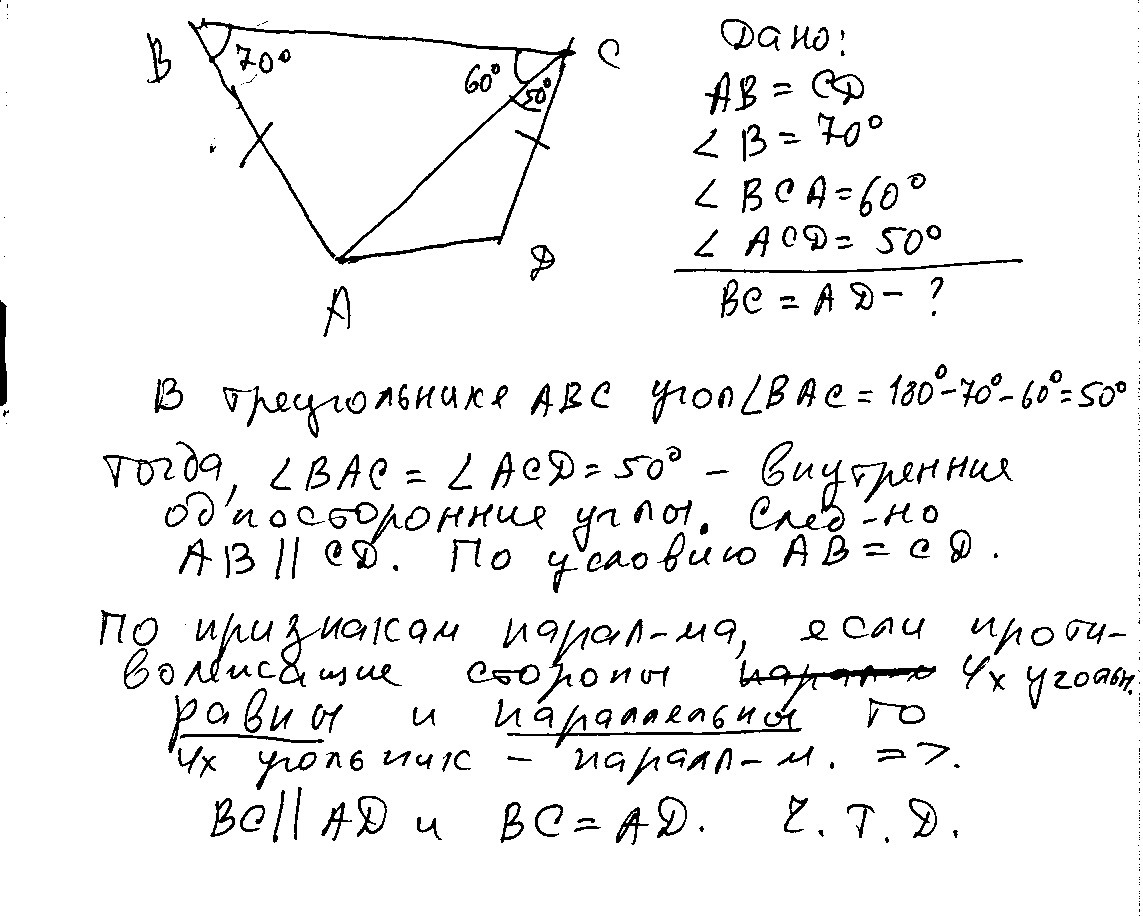 B
70°
60°
50°
C
A
D
Дано:
AB = CD
∠ B = 70°
∠ BCA = 60°
∠ ACD = 50°
BC = AD - ?
В треугольнике ABC угол ∠BAC = 180°-70°-60°=50°
тогда, ∠BAC = ∠ACD = 50° - внутренние
односторонние углы. След-но
AB || CD. По условию AB = CD.
По признакам парал-ма, если проти-
волежащие стороны 4х угольн.
равны и параллельны то
4х угольник - паралл-м. =>.
BC || AD и BC = AD. Ч.Т.Д.